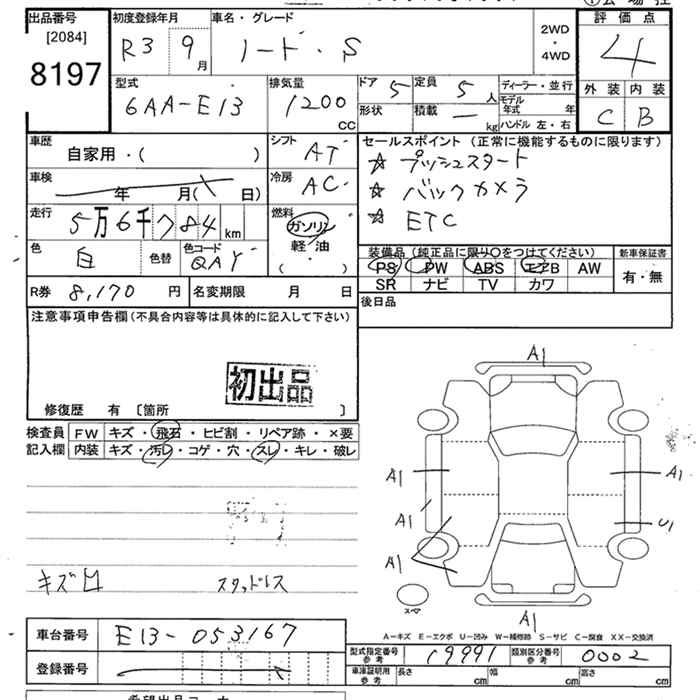 出品番号 [2084] 8197
初度登録年月 R3 9月
車名・グレード ノート・S
2WD・4WD
評価点 4
型式 6AA-E13
排気量 1200 CC
ドア 5 定員 5人
形状 積載 ー kg
ディーラー・並行
モデル年式 年
ハンドル 左・右
外装 C 内装 B
車歴 自家用・( )
シフト AT
車検 年 月( 日)
冷房 AC
走行 5万6千784km
燃料 ガソリン 軽油 ( ・ )
色 白 色替 色コード QAY
R券 8,170円 名変期限 月 日
セールスポイント(正常に機能するものに限ります)
☆ プッシュスタート
☆ バックカメラ
☆ ETC
装備品(純正品に限り○をつけてください) 新車保証書
PS PW ABS エアB AW 有・無
SR ナビ TV カワ
後日品
注意事項申告欄(不具合内容等は具体的に記入して下さい)
初出品
修復歴 有 [箇所 ]
検査員 FW キズ・飛石・ヒビ割・リペア跡・×要
記入欄 内装 キズ・汚レ・コゲ・穴・スレ・キレ・破レ
A1
A1 A1
A1 U1
A1
キズ凹 スタッドレス
スペア
A1
A-キズ E-エクボ U-凹み W-補修跡 S-サビ C-腐食 XX-交換済
車台番号 E13-053167
型式指定番号 参考 19991 類別区分番号 参考 0002
登録番号
車庫証明用 参考 長さ cm 幅 cm 高さ cm